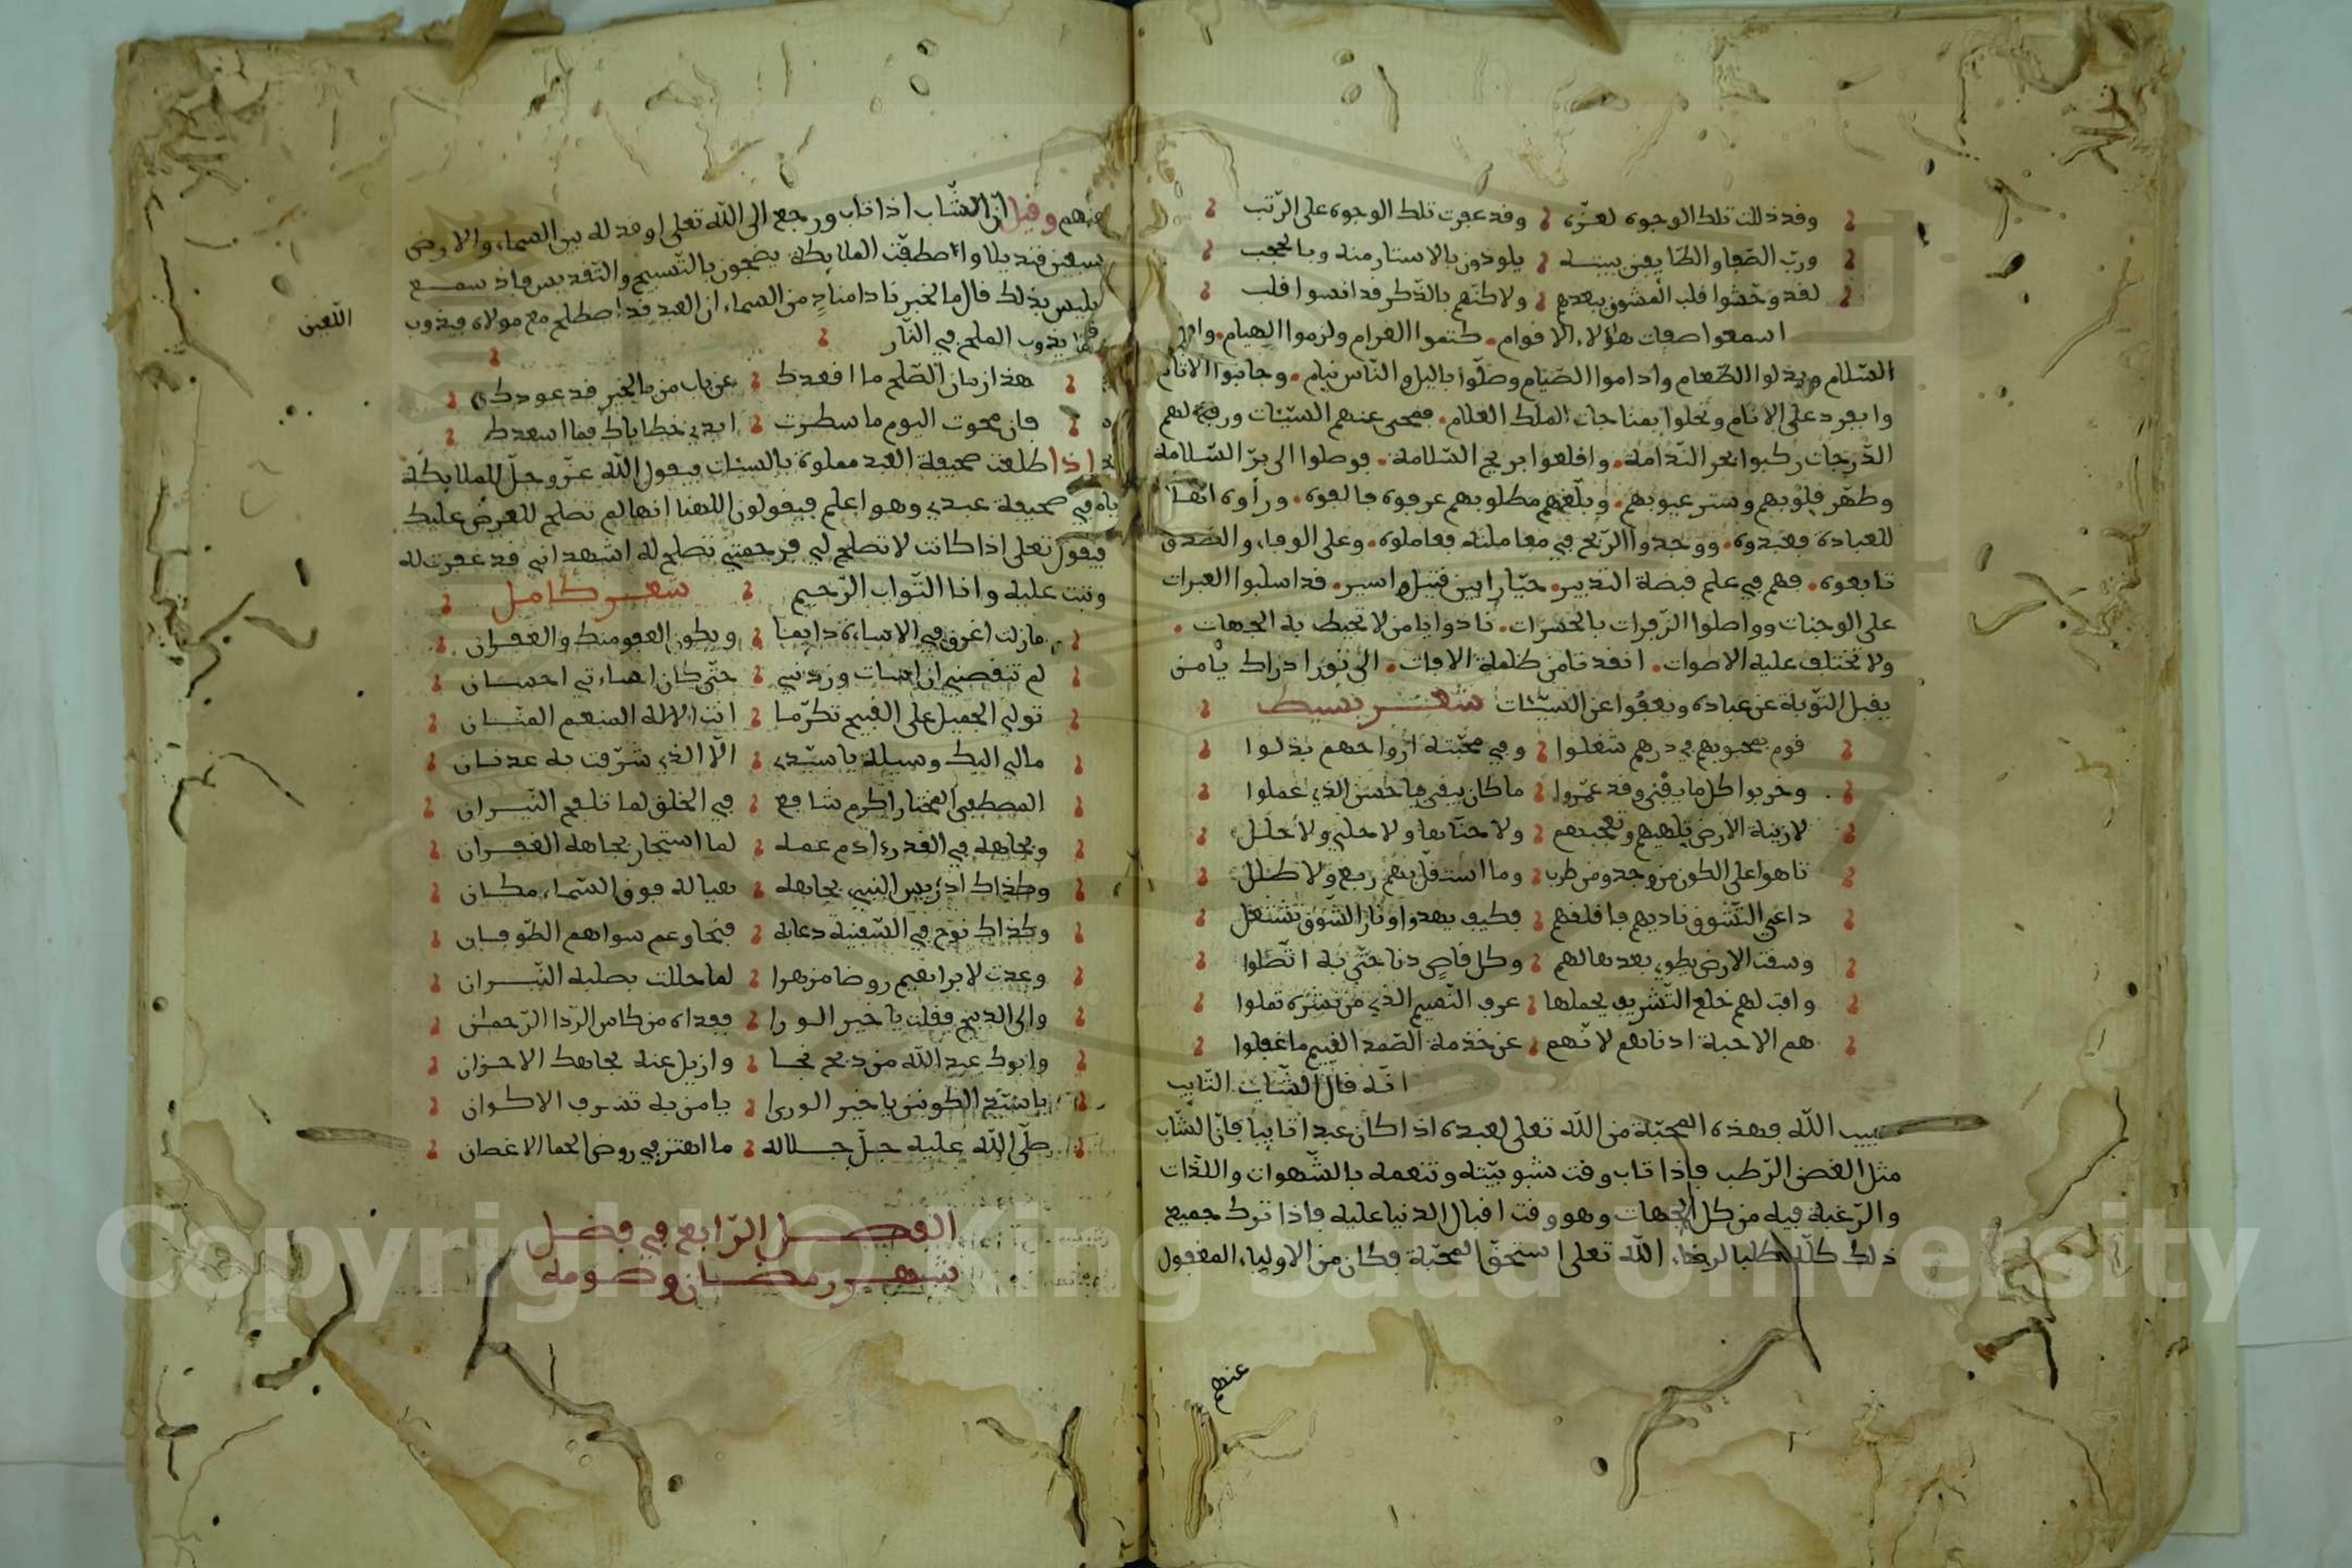 وقد ذلت تلك الوجوه لعزه وقد عبرت تلك الوجوه على الرتب
ورب الصفا والطايفين ببيته يلوذون بالاستار منه وبالحجب
لقد وحشوا قلب المشوق ببعدهم ولاكنهم بالذكر قد انسوا قلب
اسمعوا صفات هؤلاء الاقوام. كتموا الغرام ولزموا الهيام.
السلام وبذلوا الطعام واداموا الصيام وصلوا باليل والناس نيام. وجانبوا الانام
على الانام وتخلوا بمناجات الملك العلام. فمحى عنهم السيئات ورفع لهم
الدرجات ركبوا بحر الندامة. واقلعوا بريح السلامة. فوصلوا الى بر السلامة
وطهر قلوبهم وستر عيوبهم. وبلغهم مطلوبهم عرفوه فالفوه. ورأوه اهلا
للعبادة فعبدوه. ووجدوا الربح في معاملته فعاملوه. وعلى الوفاء والصدق
تابعوه. فهم في علم قبضة التدبير. حيارا بين قتيل واسير. قد اسلبوا العبرات
على الوجنات وواصلوا الزفرات بالحسرات. نادوا يا من لا تحيط به الجهات.
ولا تختلف عليه الاصوات. انقدنا من ظلمة الافات. الى نور ادراك يا من
يقبل التوبة عن عباده ويعفوا عن السيئات شعر بسيط
قوم بمحبوبهم في درهم شغلوا وفي محبته ارواحهم بذلوا
وخربوا كل ما يفنى وقد عمروا ما كان يبقى فيا حسن الذي عملوا
لا زينة الارض تلهيهم وتعجبهم ولا جناها ولا حلي ولا حلل
تاهوا على الكون من وجد ومن طرب وما استقل بهم ربع ولا طلل
داعي التشوق ناديهم فاقلقهم فكيف يهدوا ونار الشوق تشتعل
وسقت الارض يطوى بعدها لهم وكل قاص دنا حتى به اتصلوا
وافت لهم خلع التشريف يحملها عرف النسيم الذي من نشره ثملوا
هم الاحبة ادناهم لانهم عن خدمة الصمد القيم ما غفلوا
انه قال الشاب التايب
حبيب الله فهذه المحبة من الله تعلى لعبده اذا كان عبدا تايبا فان الشاب
مثل الغصن الرطب فاذا تاب وقت شبوبيته وتنعمه بالشهوات واللذات
والرغبة فيه من كل الجهات وهو وقت اقبال الدنيا عليه فاذا ترك جميع
ذلك كله طلبا لرضاء الله تعلى استحق المحبة فكان من الاولياء المقبول
عنهم
عنهم وقيل ان الشاب اذا تاب ورجع الى الله تعلى اوقد له بين السماء والارض
سبعين قنديلا واصطفت الملايكة يضجون بالتسبيح والتقديس فاذ سمع
ابليس بذلك قال ما الخبر نادا مناد من السماء ان العبد قد اصطلح مع مولاه فيذوب
اللعين
كما يذوب الملح في النار
هذا زمان الصلح ما اقعدك عن باب من بالخير قد عودك
فان محوت اليوم ما سطرت ايدي خطاياك فما اسعدك
اذا طلعت صحيفة العبد مملوة بالسيئات فيقول الله عز وجل للملايكة
في صحيفة عبدي وهو اعلم فيقولون الهنا انها لم تصلح للعرض عليك
فيقول تعلى اذا كانت لا تصلح لي فرحمتي تصلح له اشهد اني قد غفرت له
وتبت عليه وانا التواب الرحيم شعر كامل
ما زلت اغرق في الاساءة دايما ويكون العفو منك والغفران
لم تنقصني ان اسات وزدتني حتى كان اساءتي احسان
تولي الجميل على القبيح تكرما انت الاله المنعم المنان
مالي اليك وسيلة يا سيدي الا الذي شرفت به عدنان
المصطفى المختار اكرم شافع في الخلق لما تلفح النيران
وبجاهه في القدر ادم عمه لما استجار بجاهه الغفران
وكذاك ادريس النبي بجاهه هيا له فوق السماء مكان
وكذاك نوح في السفينة دعابه فنجا وعم سواهم الطوفان
وعدت لابراهيم روضا مزهرا لما حللت بصلبه النيران
والى الذبيح فقلت يا خير الورا ففداه من كاس الردا الرحمن
وابوك عبد الله من ذبح نجا وازيل عنه بجاهك الاحزان
يا سيد الكونين يا خير الورا يا من به تشرف الاكوان
صلى الله عليه جل جلاله ما اهتز في روض الحما الاغصان
الفصل الرابع في فضل
شهر رمضان وصومه
Copyright © King Saud University